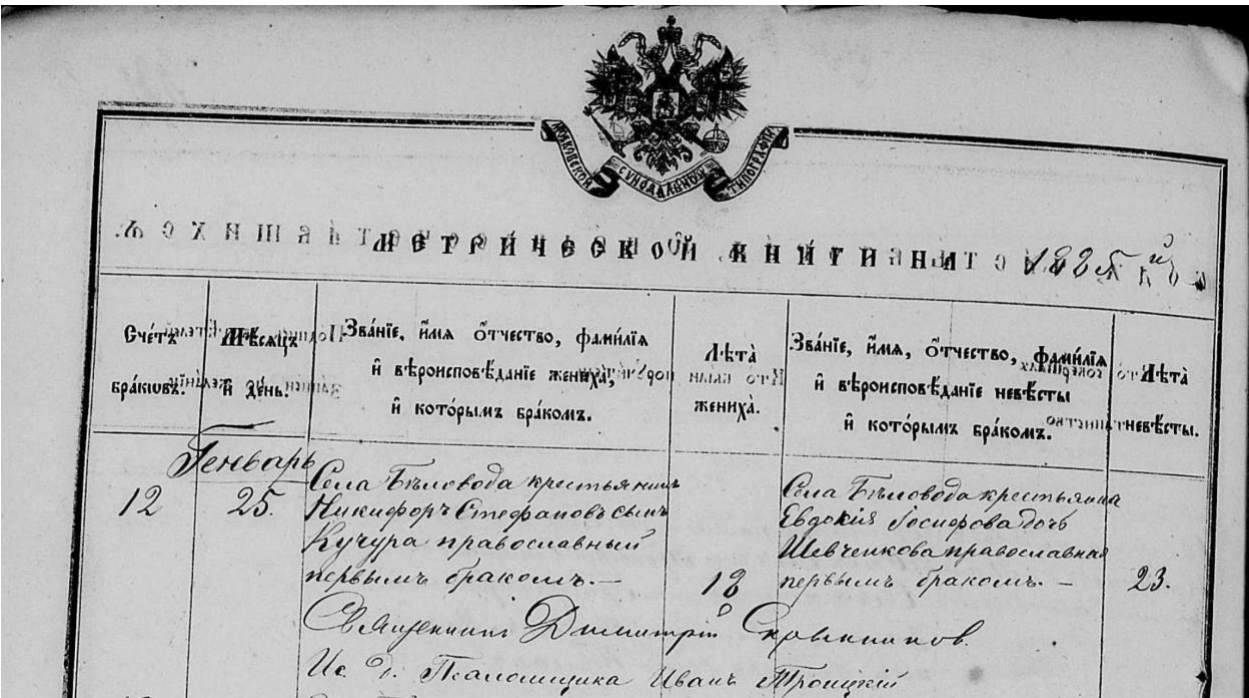 МОСКОВСКОЙ СѴНОДАЛЬНОЙ ТИПОГРАФІИ
МЕТРИЧЕСКОЙ КНИГИ НА 1885 й
Сче́тъ
бра́ковъ.
Мѣ́сяцъ
и҆ де́нь.
Зва́нїе, и҆́мя ѻ҆́тчество, фами́лїя
и҆ вѣроисповѣ́данїе жениха̀,
и҆ кото́рымъ бра́комъ.
Лѣта̀
жениха̀.
Зва́нїе, и҆́мя, ѻ҆́тчество, фами́лїя
и҆ вѣроисповѣ́данїе невѣ́сты
и҆ кото́рымъ бра́комъ.
Лѣта̀
невѣ́сты.
Генварь
12
25.
Села Бѣловода крестьянинъ
Никифоръ Стефановъ сынъ
Кучура православный
первымъ бракомъ. —
18
Села Бѣловода крестьянка
Евдокія Іосифова дочь
Шевченкова православная
первымъ бракомъ. —
23.
Священникъ Димитрій
Ис. д. Псаломщика Иванъ Троицкій